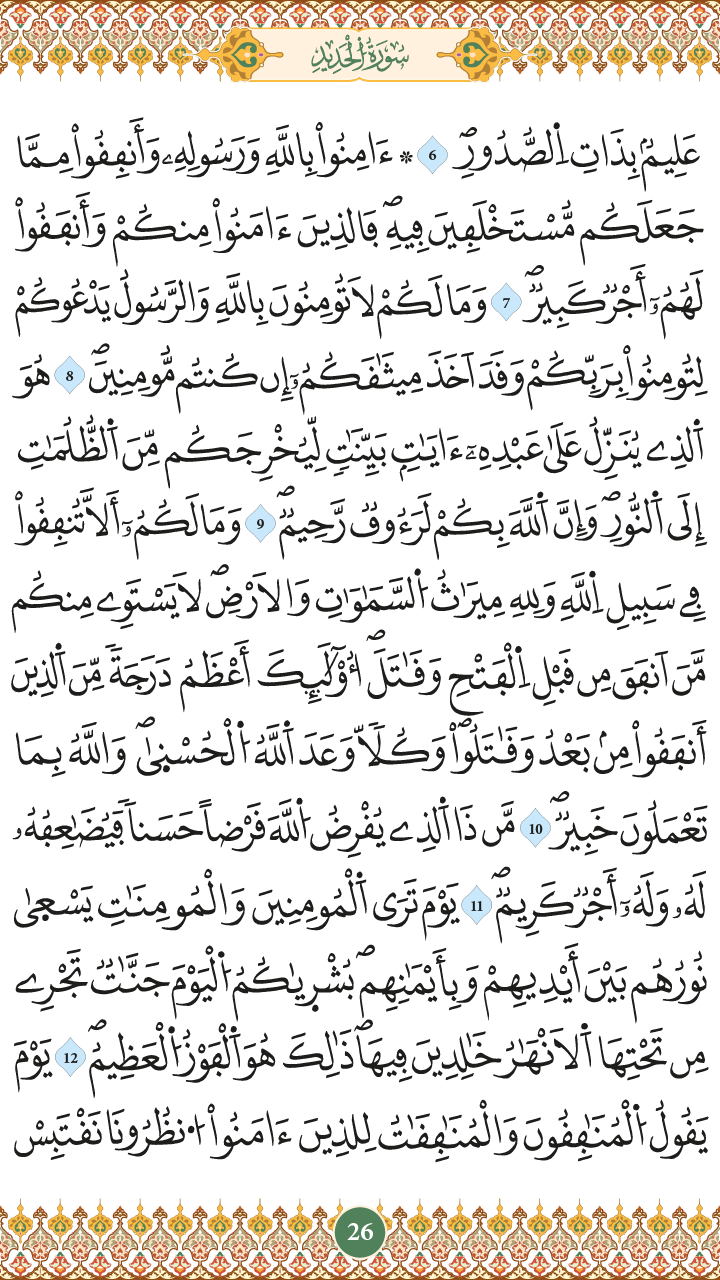 سُورَةُ الْحَدِيدِ
عَلِيمُۢ بِذَاتِ اِ۬لصُّدُورِۖ 6 ۞ ءَامِنُواْ بِاللَّهِ وَرَسُولِهِۦ وَأَنفِقُواْ مِمَّا
جَعَلَكُم مُّسْتَخْلَفِينَ فِيهِۖ فَالذِينَ ءَامَنُواْ مِنكُمْ وَأَنفَقُواْ
لَهُمُۥٓ أَجْرٞ كَبِيرٞۖ 7 وَمَا لَكُمْ لَا تُومِنُونَ بِاللَّهِ وَالرَّسُولُ يَدْعُوكُمْ
لِتُومِنُواْ بِرَبِّكُمْ وَقَدَ اَخَذَ مِيثَٰقَكُمُۥٓ إِن كُنتُم مُّومِنِينَۖ 8 هُوَ
اَ۬لذِے يُنَزِّلُ عَلَىٰ عَبْدِهِۦٓ ءَايَٰتِۢ بَيِّنَٰتٖ لِّيُخْرِجَكُم مِّنَ اَ۬لظُّلُمَٰتِ
إِلَى اَ۬لنُّورِۖ وَإِنَّ اَ۬للَّهَ بِكُمْ لَرَءُوفٞ رَّحِيمٞۖ 9 وَمَا لَكُمُۥٓ أَلَّا تُنفِقُواْ
فِے سَبِيلِ اِ۬للَّهِ وَلِلهِ مِيرَٰثُ اُ۬لسَّمَٰوَٰتِ وَالَارْضِۖ لَا يَسْتَوِے مِنكُم
مَّنَ اَنفَقَ مِن قَبْلِ اِ۬لْفَتْحِ وَقَٰتَلَۖ أُوْلَٰٓئِكَ أَعْظَمُ دَرَجَةٗ مِّنَ اَ۬لذِينَ
أَنفَقُواْ مِنۢ بَعْدُ وَقَٰتَلُواْۖ وَكُلّاٗ وَعَدَ اَ۬للَّهُ اُ۬لْحُسْن۪ىٰۖ وَاللَّهُ بِمَا
تَعْمَلُونَ خَبِيرٞۖ 10 مَّن ذَا اَ۬لذِے يُقْرِضُ اُ۬للَّهَ قَرْضاً حَسَناٗ فَيُضَٰعِفُهُۥ
لَهُۥ وَلَهُۥٓ أَجْرٞ كَرِيمٞۖ 11 يَوْمَ تَرَى اَ۬لْمُومِنِينَ وَالْمُومِنَٰتِ يَسْع۪ىٰ
نُورُهُم بَيْنَ أَيْدِيهِمْ وَبِأَيْمَٰنِهِمۖ بُشْر۪يٰكُمُ اُ۬لْيَوْمَ جَنَّٰتٞ تَجْرِے
مِن تَحْتِهَا اَ۬لَانْهَٰرُ خَٰلِدِينَ فِيهَاۖ ذَٰلِكَ هُوَ اَ۬لْفَوْزُ اُ۬لْعَظِيمُۖ 12 يَوْمَ
يَقُولُ اُ۬لْمُنَٰفِقُونَ وَالْمُنَٰفِقَٰتُ لِلذِينَ ءَامَنُواْ اُ۟نظُرُونَا نَقْتَبِسْ
26